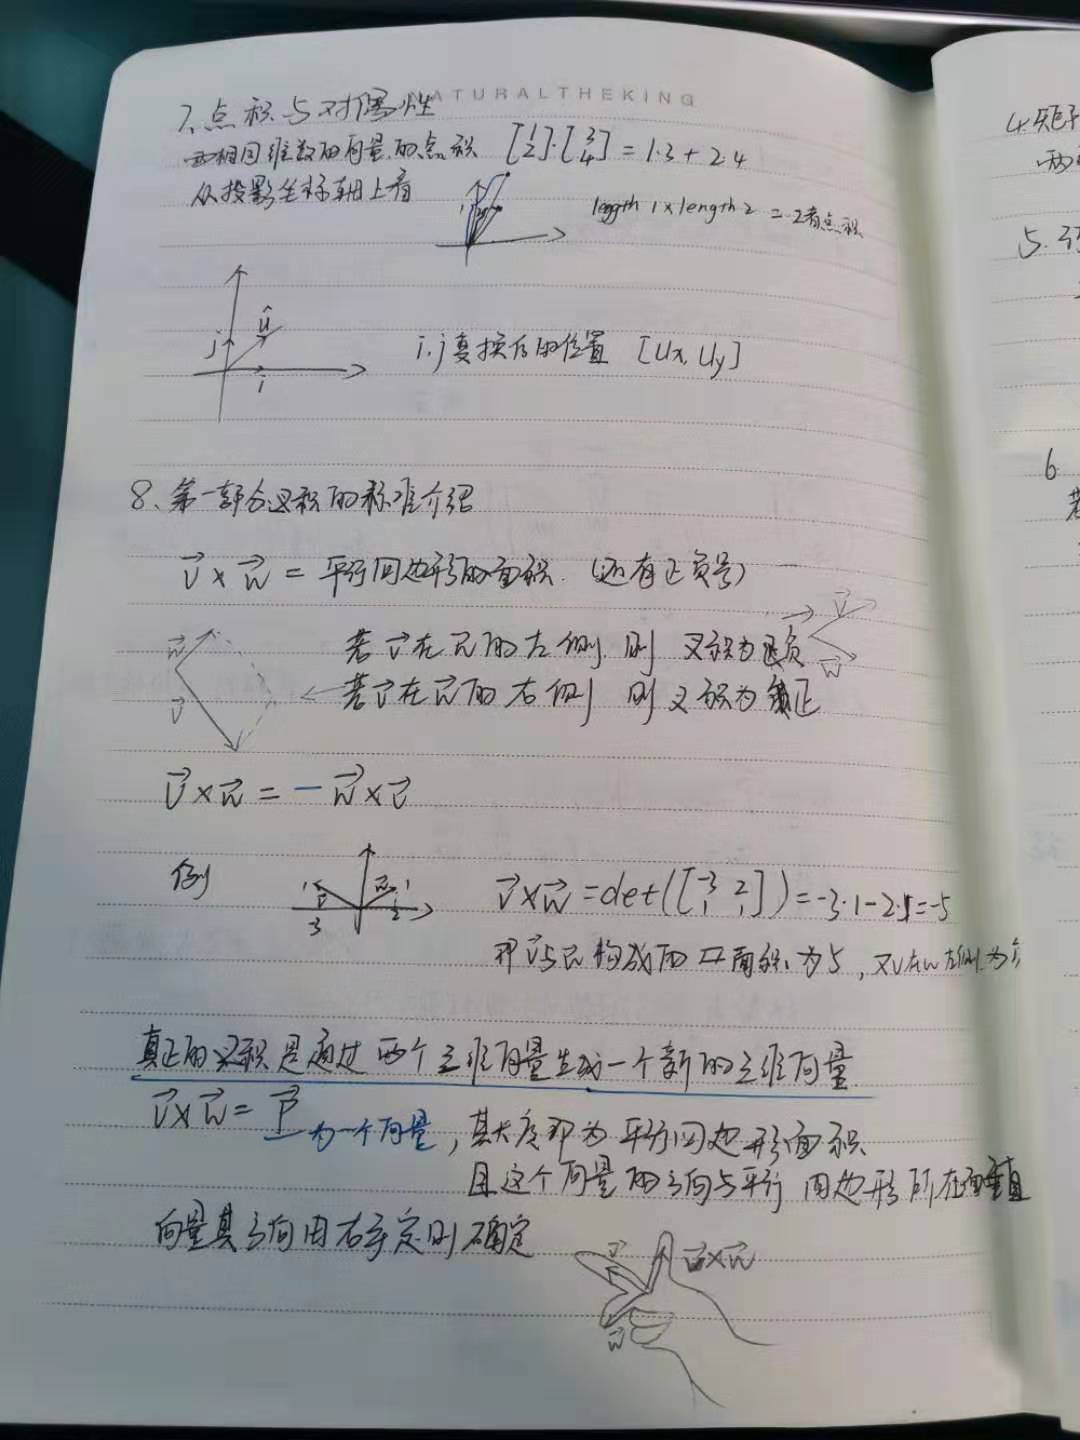 NATURALTHEKING
7、点积与对偶性
两相同维数的向量的点积 [1 2]·[3 4] = 1·3 + 2·4
从投影坐标轴上看 length 1 × length 2 = 2者点积
j û i
i、j变换后的位置 [Ux, Uy]
8、第一部分叉积的标准介绍
v⃗ × w⃗ = 平行四边形的面积.(还有正负号)
若v⃗在w⃗的左侧,则 叉积为负 v⃗ w⃗
w⃗ v⃗ 若v⃗在w⃗的右侧 则叉积为正
v⃗ × w⃗ = - w⃗ × v⃗
例 1 v⃗ 3 w⃗ 1 2 v⃗ × w⃗ = det([-3 2 1 1]) = -3·1 - 2·1 = -5
即v⃗与w⃗构成的▱面积为5,又v在w左侧.为负
真正的叉积是通过两个三维向量生成一个新的三维向量
v⃗ × w⃗ = P⃗ 为一个向量,其长度即为平行四边形面积
且这个向量的方向与平行四边形所在面垂直
向量其方向由右手定则确定
v⃗ w⃗ v⃗ × w⃗
4.矩
两
5.行
6
若